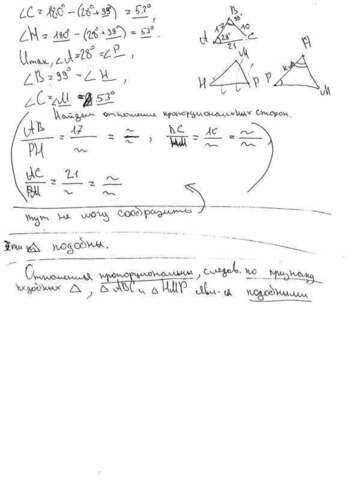 ∠C = 180° − (28° + 99°) = 53°,
∠H = 180 − (28° + 99°) = 53°.
Итак, ∠A = 28° = ∠P,
∠B = 99° = ∠H,
∠C = ∠M = 53°
Найдём отношение пропорциональных сторон.
AB/PH = 17/~ = ~/~ , BC/HM = 10/~ = ~/~ ,
AC/PM = 21/~ = ~/~
тут не могу сообразить
Эти △ подобны.
Отношения пропорциональны, следов. по признаку
подобных △, △ABC и △HMP явл-ся подобными
B
17 99° 10
A 28° C
21
M
H P
H
P M